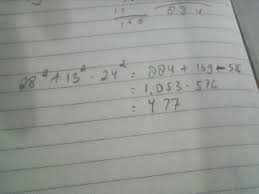 28² + 13² - 24² = 884 + 169 - 576
= 1,053 - 576
= 477